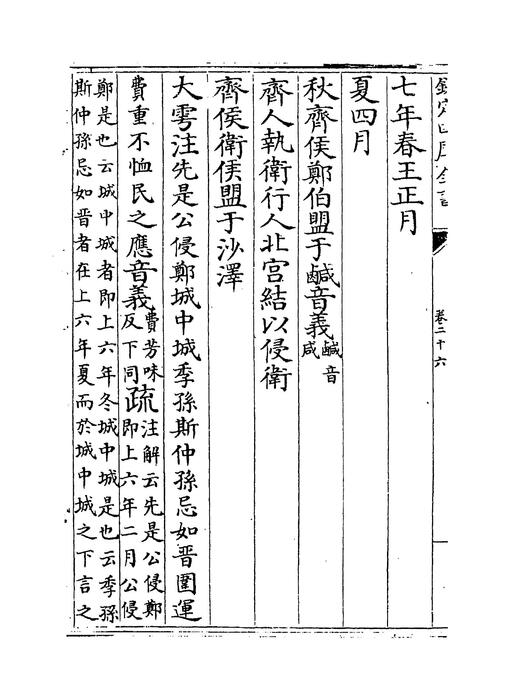 欽定四庫全書
卷二十六
七年春王正月
夏四月
秋齊侯鄭伯盟于鹹音義鹹音
咸
齊人執衛行人北宫結以侵衛
齊侯衛侯盟于沙澤
大雩注先是公侵鄭城中城季孫斯仲孫忌如晉圍運
費重不恤民之應音義費芳味
反下同疏注解云先是公侵鄭
即上六年二月公侵
鄭是也云城中城者即上六年冬城中城是也云季孫
斯仲孫忌如晉者在上六年夏而於城中城之下言之